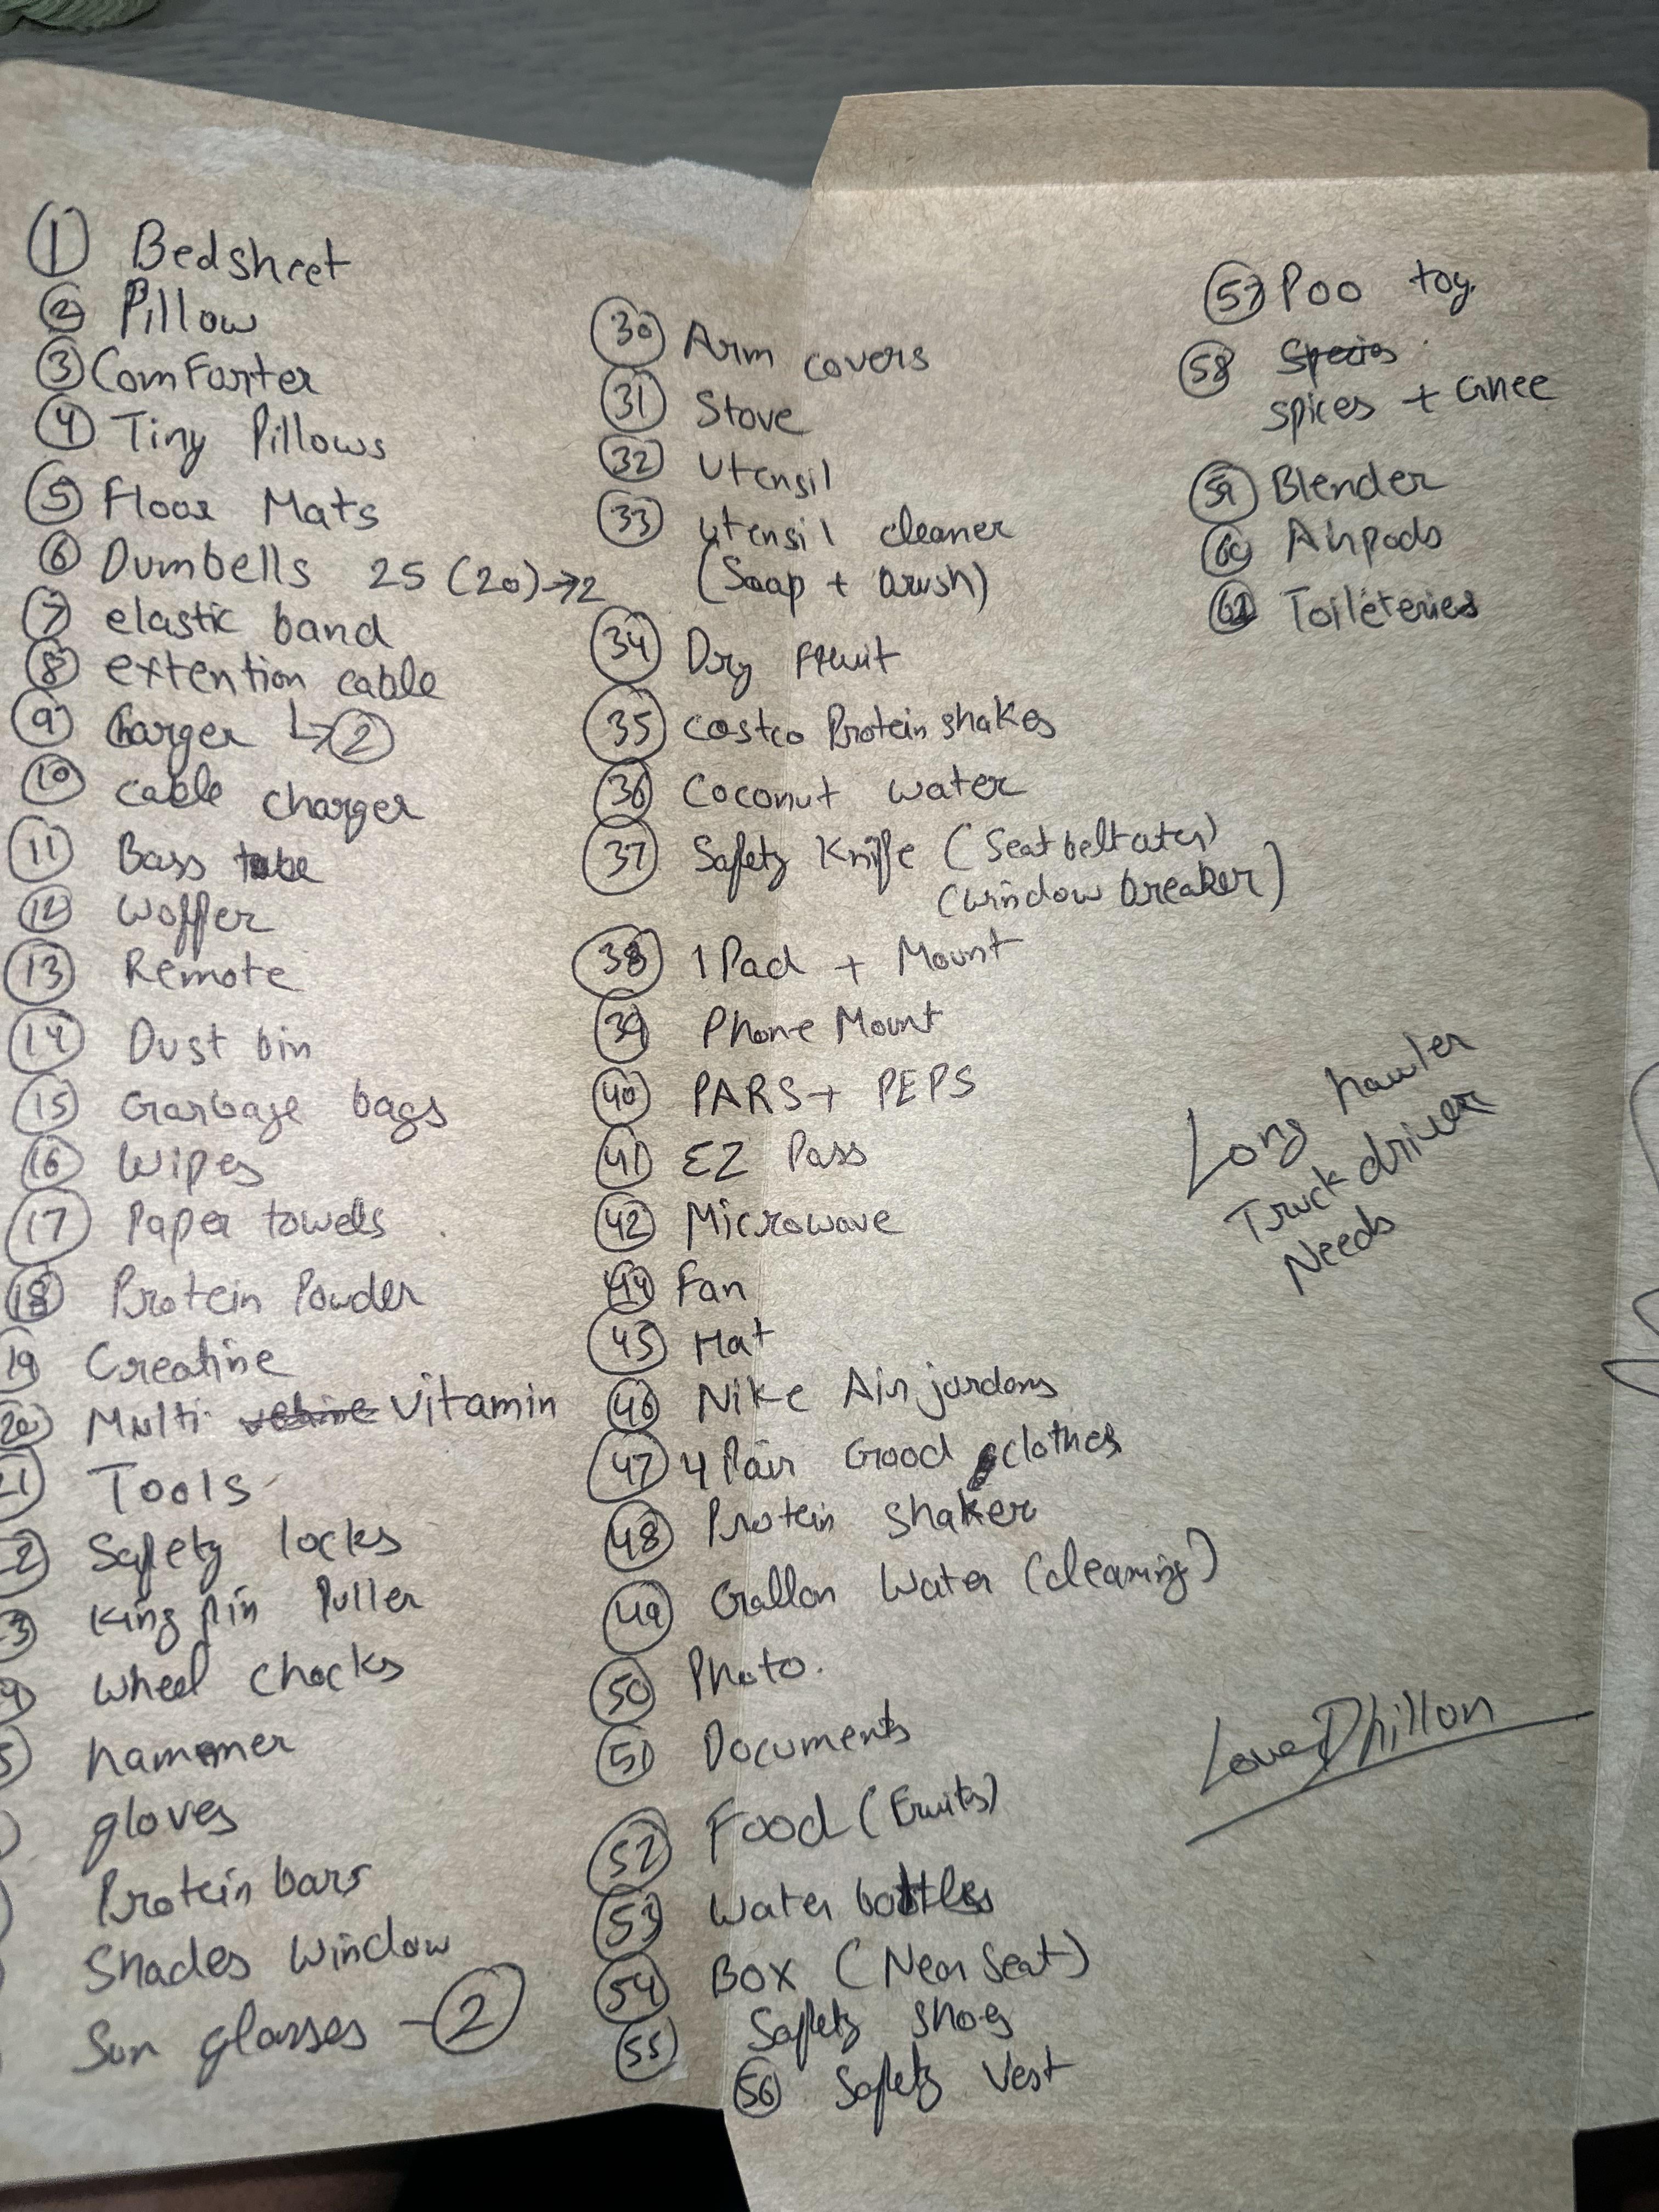 1 Bedsheet
2 Pillow
3 Comforter
4 Tiny Pillows
5 Floor Mats
6 Dumbells 25 (20)→2
7 elastic band
8 extention cable
↳2
9 Charger
10 cable charger
11 Bass tube
12 Woffer
13 Remote
14 Dust bin
15 Garbage bags
16 Wipes
17 Paper towels
18 Protein Powder
19 Creatine
20 Multi vitamin
21 Tools
2 Safety locks
3 King pin Puller
4 Wheel Chocks
5 hammer
gloves
Protein bars
Shades Window
Sun glasses - 2
30 Arm covers
31 Stove
32 utensil
33 utensil cleaner
(Soap + brush)
34 Dry fruit
35 costco Protein shakes
36 Coconut water
37 Safety Knife (Seat belt cuter)
(window breaker)
38 I Pad + Mount
39 Phone Mount
40 PARS + PEPS
41 EZ Pass
42 Microwave
44 Fan
45 Hat
46 Nike Air jordans
47 4 Pair Good clothes
48 Protein shaker
49 Gallon Water (cleaning)
50 Photo.
51 Documents
52 Food (Fruits)
53 Water bottles
54 Box (Near Seat)
55 Safety shoes
56 Safety Vest
57 Poo toy.
58 Species
spices + Ghee
59 Blender
60 Airpods
61 Toileteries
Long hauler
Truck driver
Needs
Love Dhillon